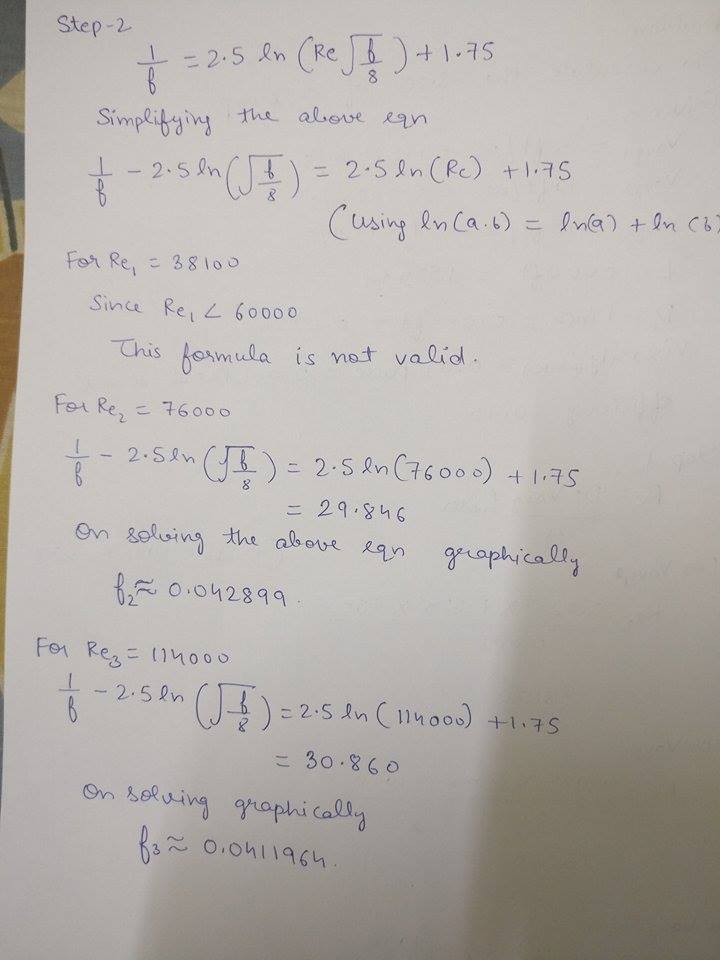 Step-2
1/f = 2.5 ln (Re √f/8) + 1.75
Simplifying the above eqn
1/f - 2.5 ln (√f/8) = 2.5 ln (Re) + 1.75
(Using ln(a.b) = ln(a) + ln (b)
For Re₁ = 38100
Since Re₁ < 60000
This formula is not valid.
For Re₂ = 76000
1/f - 2.5 ln (√f/8) = 2.5 ln (76000) + 1.75
= 29.846
On solving the above eqn graphically
f₂ ≈ 0.042899.
For Re₃ = 114000
1/f - 2.5 ln (√f/8) = 2.5 ln (114000) + 1.75
= 30.860
On solving graphically
f₃ ≈ 0.0411964.